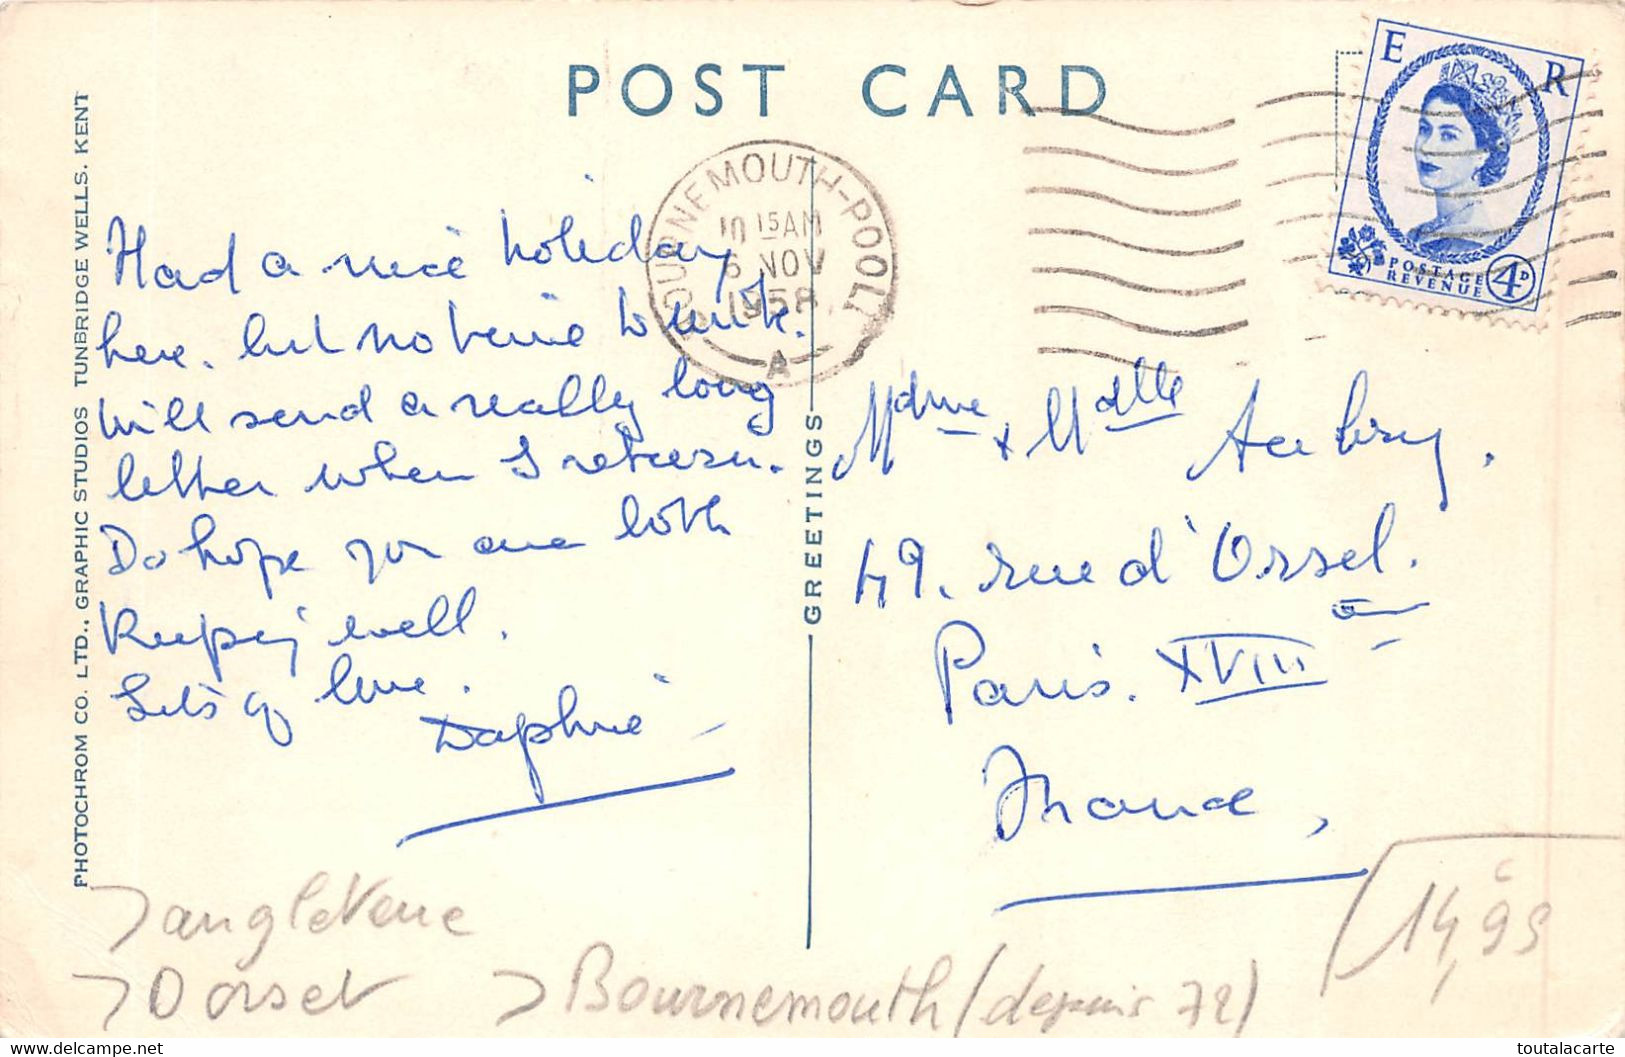 POST CARD
PHOTOCHROM CO. LTD., GRAPHIC STUDIOS TUNBRIDGE WELLS. KENT
Had a nice holiday
here, but no time to write.
Will send a really long
letter when I return.
Do hope you are both
Keeping well.
Lots of love.
Daphne
GREETINGS
BOURNEMOUTH-POOLE
10 15 AM
6 NOV
1958
A
E R
POSTAGE
REVENUE
4D
Mdme & Mdlle Aubry,
49. rue d'Orsel.
Paris. XVIII
France,
> angleterre
> Dorset
> Bournemouth (depuis 72)
14,95
toutalacarte